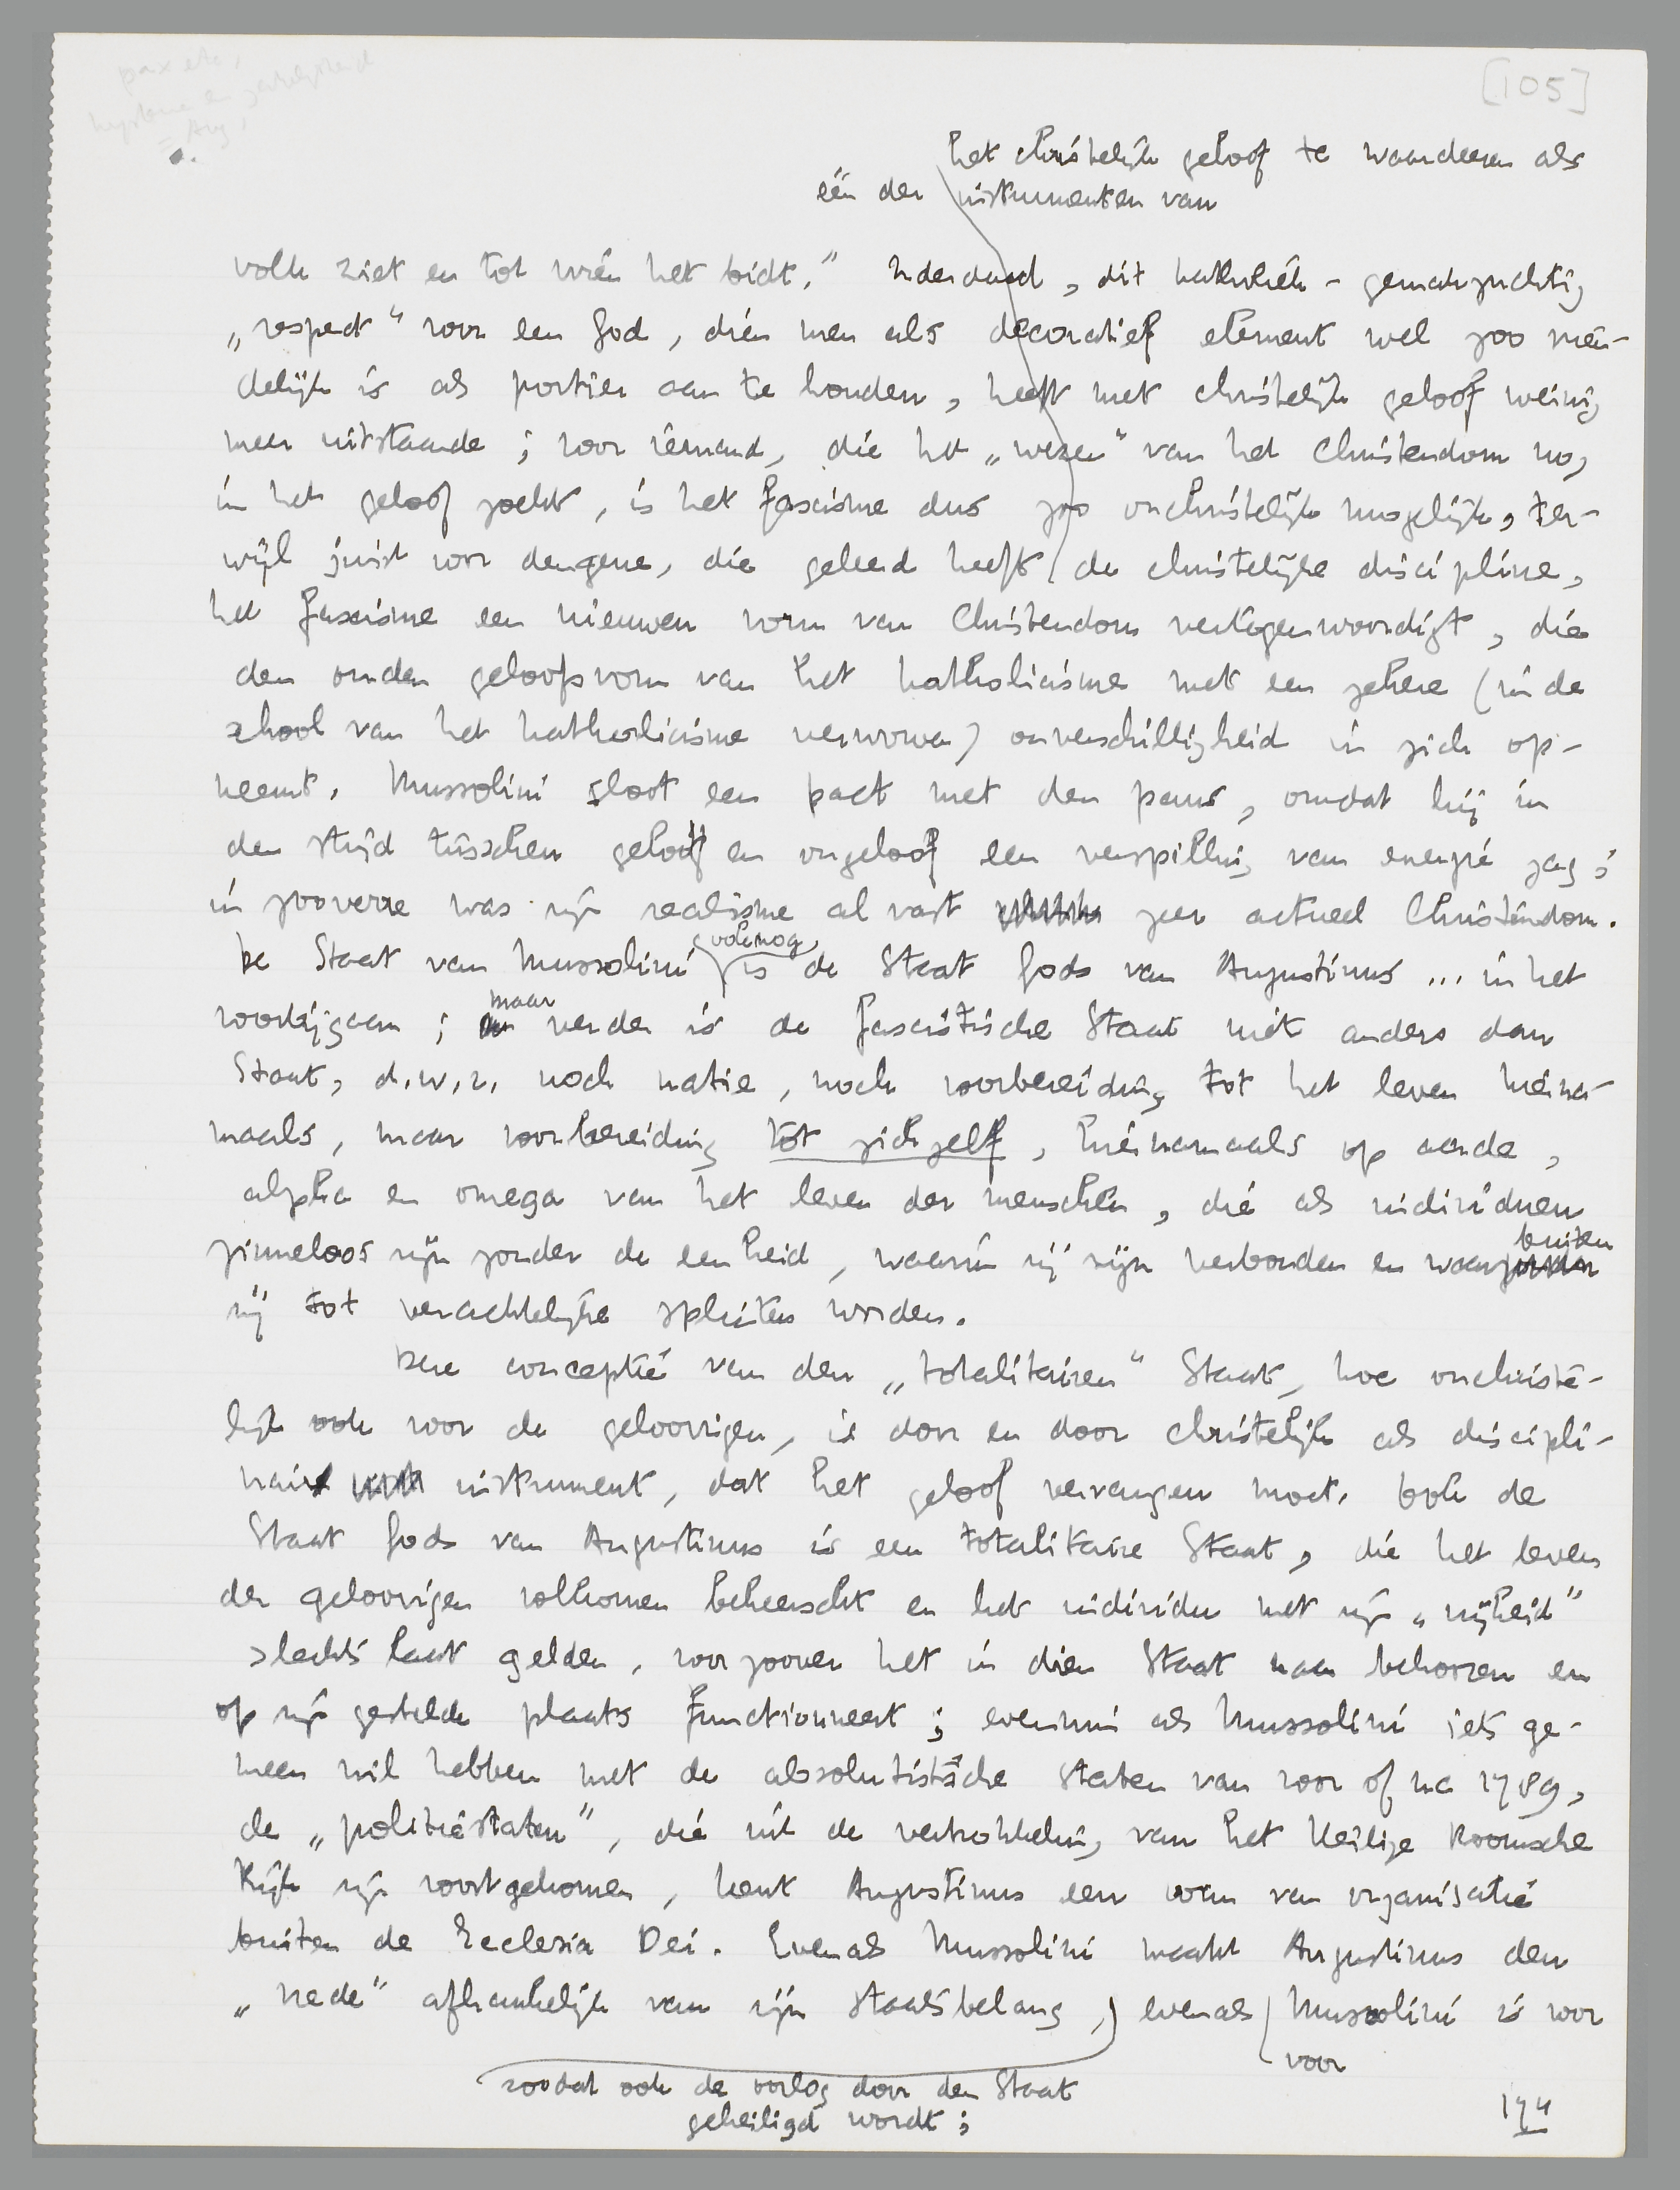 [105]
het christelijk geloof te waardeeren als
één der instrumenten van
volk ziet en tot wien het bidt." Inderdaad, dit katholiek-gemakzuchtig
„respect" voor een God, dien men als decoratief element wel zoo vrien-
delijk is als portier aan te houden, heeft met christelijk geloof weinig
meer uitstaande; voor iemand, die het „wezen" van het Christendom nog
in het geloof zoekt, is het fascisme dus zoo onchristelijk mogelijk, ter-
wijl juist voor dengene, die geleerd heeft de christelijke discipline,
het fascisme een nieuwen vorm van Christendom vertegenwoordigt, die
den ouden geloofsvorm van het katholicisme met een zekere (in de
school van het katholicisme verworven) onverschilligheid in zich op-
neemt. Mussolini sloot een pact met den paus, omdat hij in
den strijd tusschen geloof en ongeloof een verspilling van energie zag;
in zooverre was zijn realisme alvast zeer actueel Christendom.
De Staat van Mussolini is ook nog de Staat Gods van Augustinus ... in het
voorbijgaan; maar verder is de fascistische Staat niet anders dan
Staat, d.w.z. noch natie, noch voorbereiding tot het leven hierna-
maals, maar voorbereiding tot zichzelf, hiernamaals op aarde,
alpha en omega van het leven der menschen, die als individuen
zinneloos zijn zonder de eenheid, waarin zij zijn verbonden en waarbuiten
zij tot verachtelijke splinters worden.
Deze conceptie van den „totalitairen" Staat, hoe onchriste-
lijk ook voor de geloovigen, is door en door christelijk als discipli-
nair instrument, dat het geloof vervangen moet. Ook de
Staat Gods van Augustinus is een totalitaire Staat, die het leven
der geloovigen volkomen beheerscht en het individu met zijn „vrijheid"
slechts laat gelden, voorzoover het in dien Staat kan behooren en
op zijn gestelde plaats functionneert; evenmin als Mussolini iets ge-
meen wil hebben met de absolutistische staten van voor of na 1789,
de „politiestaten", die uit de verbrokkeling van het Heilige Roomsche
Rijk zijn voortgekomen, kent Augustinus een vorm van organisatie
buiten de Ecclesia Dei. Evenals Mussolini maakt Augustinus den
„vrede" afhankelijk van zijn staatsbelang, evenals Mussolini is voor
voor
zoodat ook de oorlog door den Staat
geheiligd wordt;
174